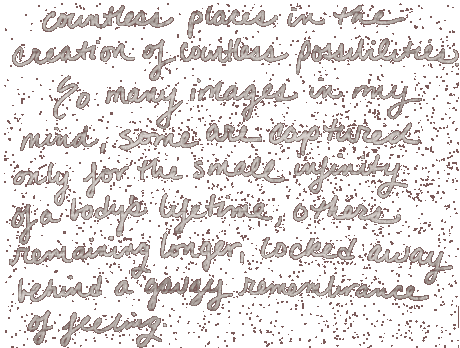 countless places in the
creation of countless possibilities
So many images in my
mind, some are captured
only for the small infinity
of a body's lifetime, others
remaining longer, locked away
behind a gauzy remembrance
of feeling